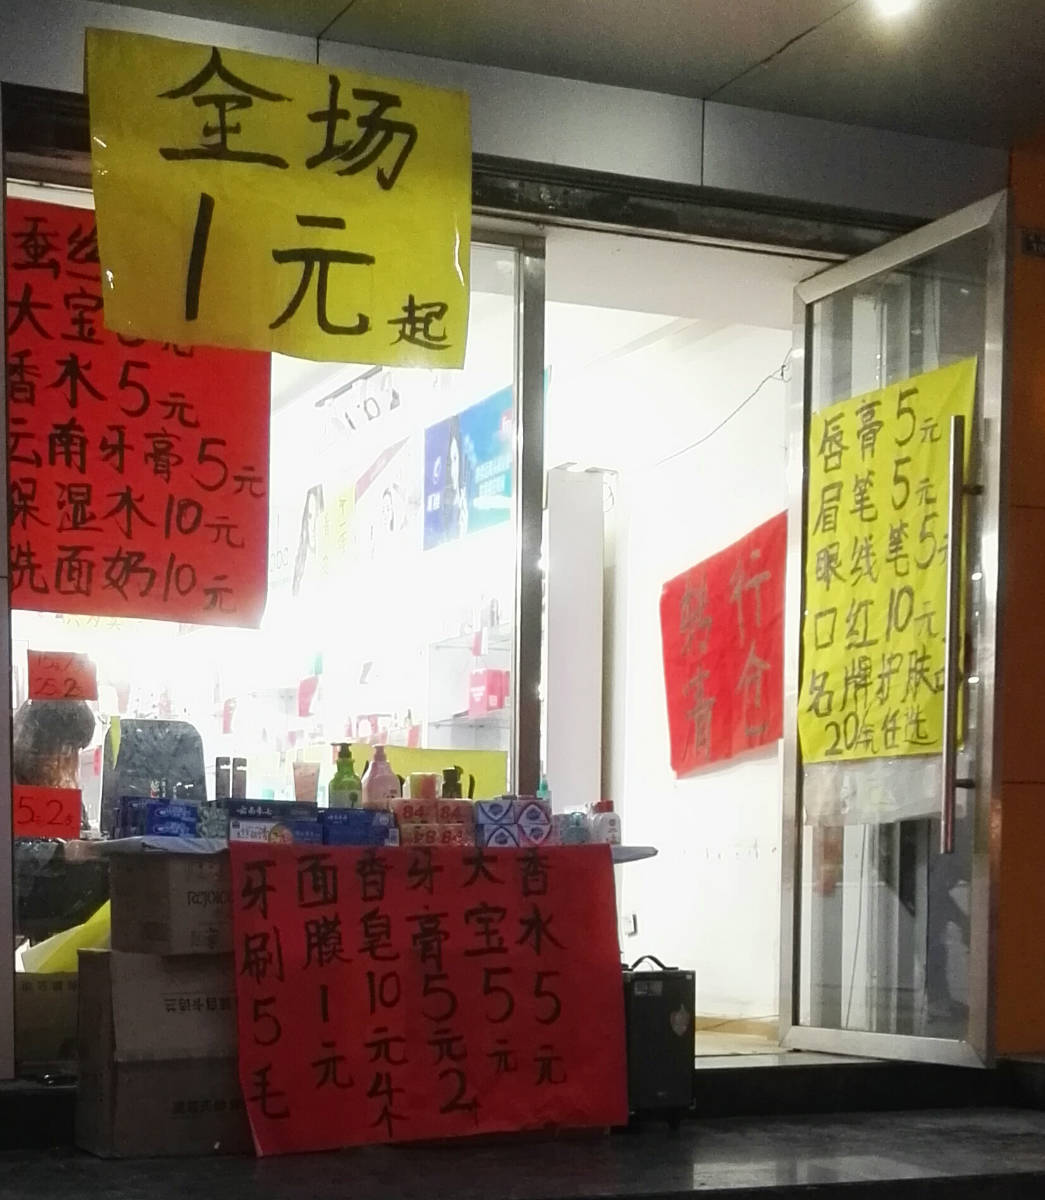 全场
1元起
蚕丝
大宝5元
香水5元
云南牙膏5元
保湿水10元
洗面奶10元
唇膏5元
眉笔5元
眼线笔5元
口红10元
名牌护肤品
20元任选
5元2
牙刷5毛
面膜1元
香皂10元4个
牙膏5元2个
大宝5元
香水5元
84
84